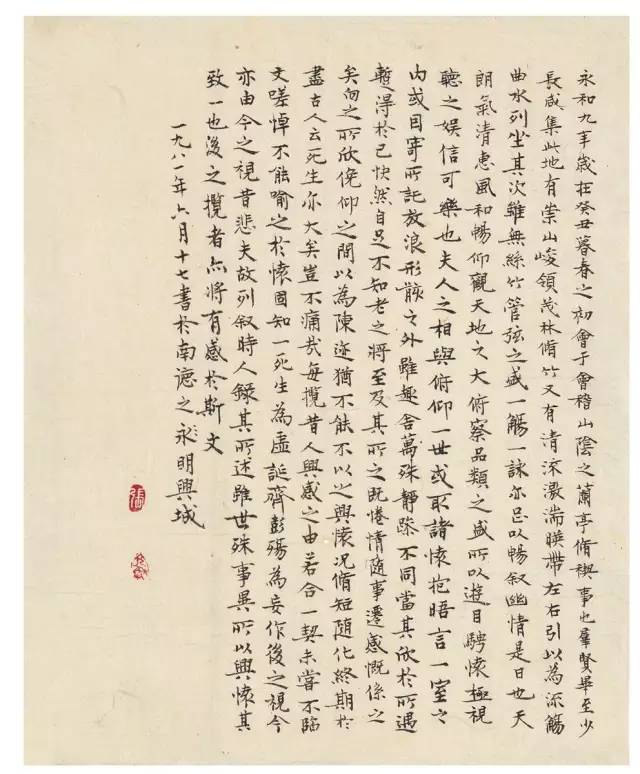 永和九年歲在癸丑暮春之初會于會稽山陰之蘭亭脩禊事也羣賢畢至少
長咸集此地有崇山峻領茂林脩竹又有清流激湍暎帶左右引以為流觴
曲水列坐其次雖無絲竹管弦之盛一觴一詠亦足以暢叙幽情是日也天
朗氣清惠風和暢仰觀天地之大俯察品類之盛所以遊目騁懷極視
聽之娛信可樂也夫人之相與俯仰一世或取諸懷抱晤言一室之
內或因寄所託放浪形骸之外雖趣舍萬殊靜躁不同當其欣於所遇
暫得於己快然自足不知老之將至及其所之既惓情隨事遷感慨係之
矣向之所欣俛仰之間以為陳迹猶不能不以之興懷况脩短隨化終期於
盡古人云死生亦大矣豈不痛哉每攬昔人興感之由若合一契未嘗不臨
文嗟悼不能喻之於懷固知一死生為虛誕齊彭殤為妄作後之視今
亦由今之視昔悲夫故列叙時人錄其所述雖世殊事異所以興懷其
致一也後之攬者亦將有感於斯文
一九八一年六月十七書於南德之永明興城
張